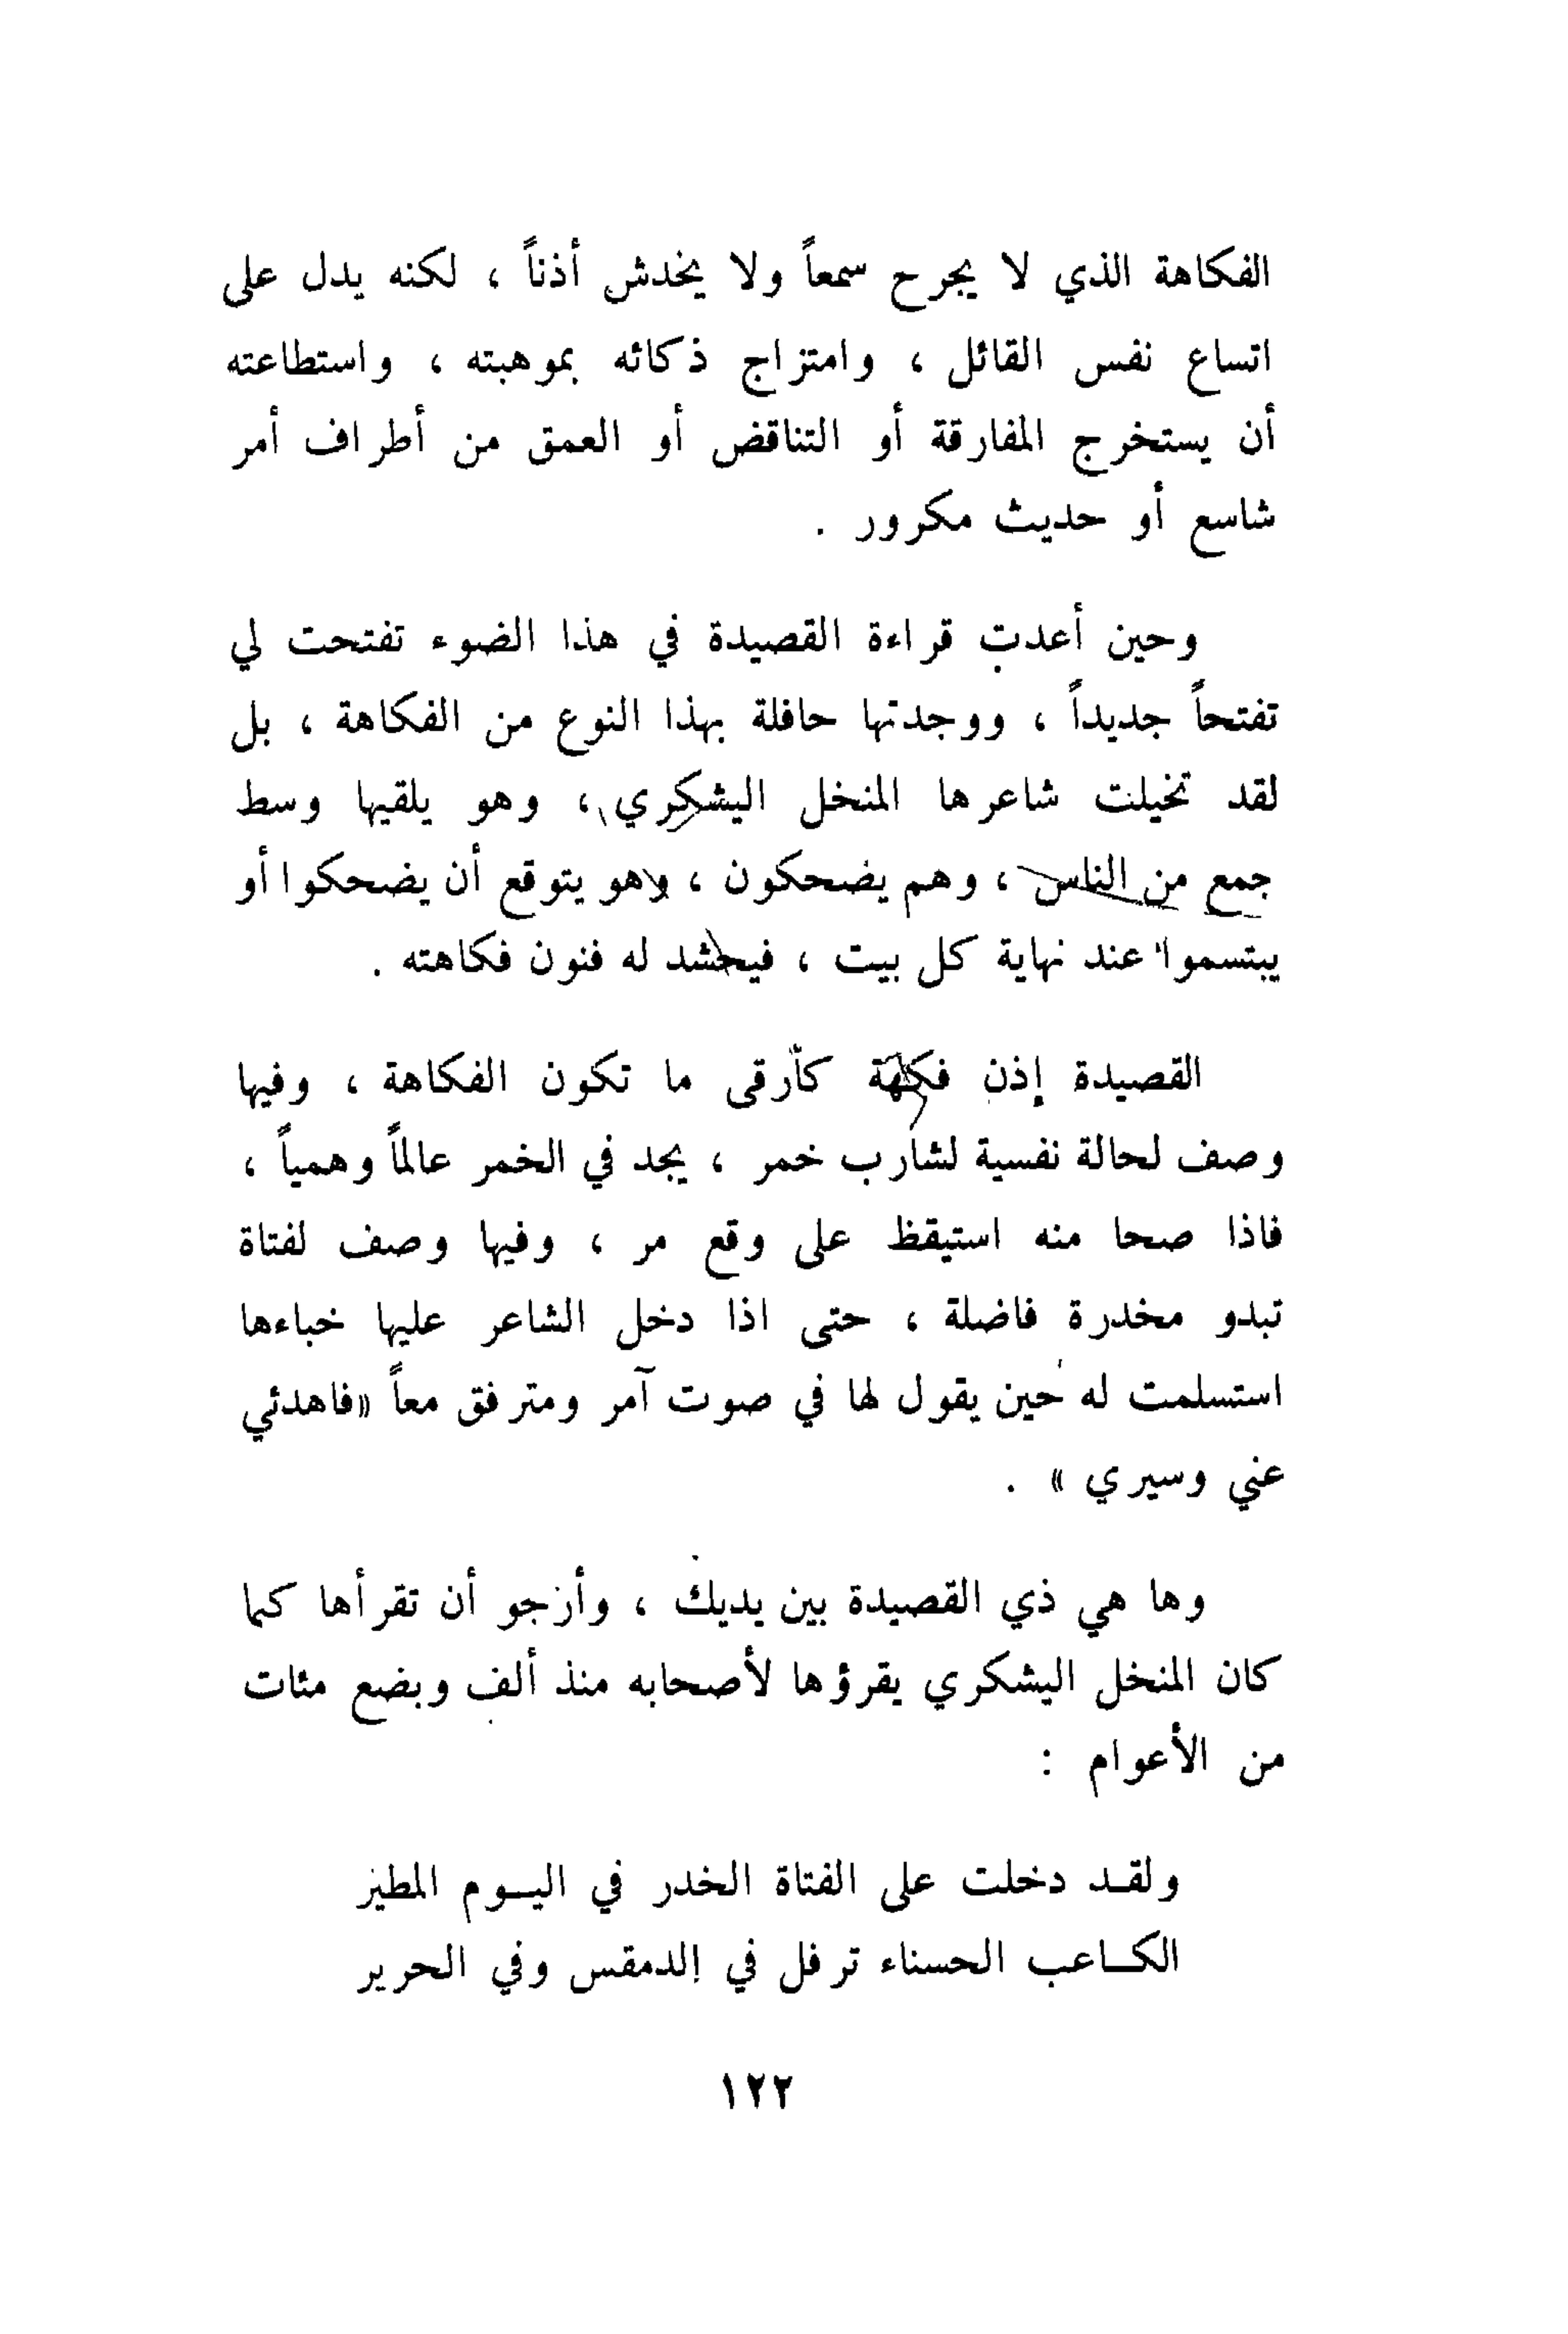 الفكاهة الذي لا يجرح سمعاً ولا يخدش أذناً ، لكنه يدل على
اتساع نفس القائل ، وامتزاج ذكائه بموهبته ، واستطاعته
أن يستخرج المفارقة أو التناقض أو العمق من أطراف أمر
شاسع أو حديث مكرور .
وحين أعدت قراءة القصيدة في هذا الضوء تفتحت لي
تفتحاً جديداً ، ووجدتها حافلة بهذا النوع من الفكاهة ، بل
لقد تخيلت شاعرها المنخل اليشكري ، وهو يلقيها وسط
جمع من الناس ، وهم يضحكون ، وهو يتوقع أن يضحكوا أو
يبتسموا عند نهاية كل بيت ، فيحشد له فنون فكاهته .
القصيدة إذن فكهة كأرقى ما تكون الفكاهة ، وفيها
وصف لحالة نفسية لشارب خمر ، يجد في الخمر عالماً وهمياً ،
فاذا صحا منه استيقظ على وقع مر ، وفيها وصف لفتاة
تبدو مخدرة فاضلة ، حتى اذا دخل الشاعر عليها خباءها
استسلمت له حين يقول لها في صوت آمر ومترفق معاً «فاهدئي
عني وسيري » .
وها هي ذي القصيدة بين يديك ، وأرجو أن تقرأها كما
كان المنخل اليشكري يقرؤها لأصحابه منذ ألف وبضع مئات
من الأعوام :
ولقد دخلت على الفتاة الخدر في اليوم المطير
الكاعب الحسناء ترفل في الدمقس وفي الحرير
١٢٢